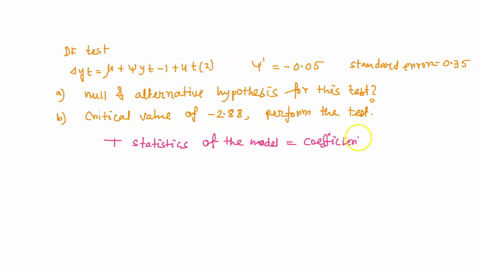 DF test
Δyt = μ + ψyt-1 + ut (2) ψ' = -0.05 standard error = 0.35
a) null & alternative hypothesis for this test?
b) Critical value of -2.88, perform the test.
T statistics of the model = coefficien